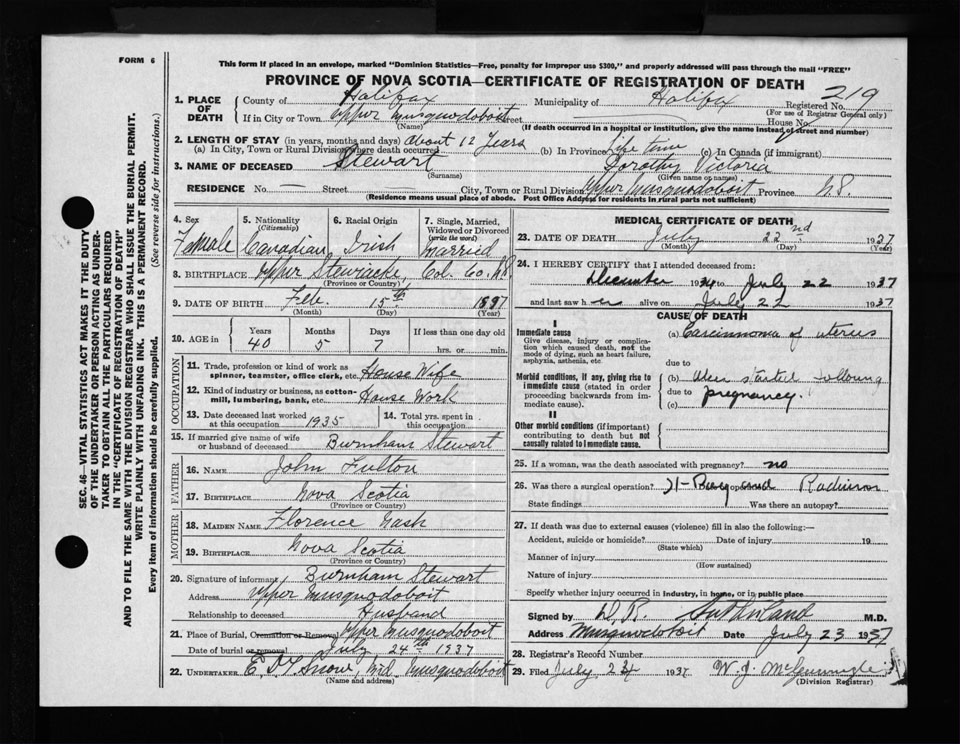 FORM 6
This form if placed in an envelope, marked "Dominion Statistics—Free, penalty for improper use $300," and properly addressed will pass through the mail "FREE"
PROVINCE OF NOVA SCOTIA—CERTIFICATE OF REGISTRATION OF DEATH
1. PLACE OF DEATH County of Halifax Municipality of Halifax Registered No. 219
(For use of Registrar General only)
If in City or Town Upper Musquodoboit Street House No.
(Name) (If death occurred in a hospital or institution, give the name instead of street and number)
2. LENGTH OF STAY (in years, months and days) About 12 Years
(a) In City, Town or Rural Division where death occurred (b) In Province Life Time (c) In Canada (if immigrant)
3. NAME OF DECEASED Stewart Dorothy Victoria
(Surname) (Given name or names)
RESIDENCE No. — Street — City, Town or Rural Division Upper Musquodoboit Province N.S.
(Residence means usual place of abode. Post Office Address for residents in rural parts not sufficient)
4. Sex 5. Nationality (Citizenship) 6. Racial Origin 7. Single, Married, Widowed or Divorced (write the word)
Female Canadian Irish Married
8. BIRTHPLACE Upper Stewiacke, Col. Co. N.S.
(Province or Country)
9. DATE OF BIRTH Feb. 15th 1897
(Month) (Day) (Year)
10. AGE in Years Months Days If less than one day
40 5 7 hrs. or min.
OCCUPATION
11. Trade, profession or kind of work as spinner, teamster, office clerk, etc. House Wife
12. Kind of industry or business, as cotton-mill, lumbering, bank, etc. House Work
13. Date deceased last worked at this occupation 1935
14. Total yrs. spent in this occupation
15. If married give name of wife or husband of deceased Burnham Stewart
FATHER
16. NAME John Fulton
17. BIRTHPLACE Nova Scotia
(Province or Country)
MOTHER
18. MAIDEN NAME Florence Nash
19. BIRTHPLACE Nova Scotia
(Province or Country)
20. Signature of informant Burnham Stewart
Address Upper Musquodoboit
Relationship to deceased Husband
21. Place of Burial, Cremation or Removal Upper Musquodoboit
Date of burial or removal July 24th 1937
22. UNDERTAKER Snow, Mid. Musquodoboit
(Name and address)
MEDICAL CERTIFICATE OF DEATH
23. DATE OF DEATH July 22nd 1937
(Month) (Day) (Year)
24. I HEREBY CERTIFY that I attended deceased from:
December 1934 to July 22 1937
and last saw her alive on July 22 1937
CAUSE OF DEATH
I
Immediate cause
Give disease, injury or complication which caused death, not the mode of dying, such as heart failure, asphyxia, asthenia, etc.
(a) Carcinnoma of uterus
due to
Morbid conditions, if any, giving rise to immediate cause (stated in order proceeding backwards from immediate cause).
(b) started following
due to pregnancy.
(c)
II
Other morbid conditions (if important) contributing to death but not causally related to immediate cause.
25. If a woman, was the death associated with pregnancy? no
26. Was there a surgical operation? Date of operation Radium
State findings Was there an autopsy?
27. If death was due to external causes (violence) fill in also the following:—
Accident, suicide or homicide? Date of injury 19
(State which)
Manner of injury
(How sustained)
Nature of injury
Specify whether injury occurred in industry, in home, or in public place
Signed by D. R. Sutherland M.D.
Address Musquodoboit Date July 23 1937
28. Registrar's Record Number
29. Filed July 24 1937 W. J.
(Division Registrar)
SEC. 46—VITAL STATISTICS ACT MAKES IT THE DUTY
OF THE UNDERTAKER OR PERSON ACTING AS UNDER-
TAKER TO OBTAIN ALL THE PARTICULARS REQUIRED
IN THE "CERTIFICATE OF REGISTRATION OF DEATH"
AND TO FILE THE SAME WITH THE DIVISION REGISTRAR WHO SHALL ISSUE THE BURIAL PERMIT.
WRITE PLAINLY WITH UNFADING INK. THIS IS A PERMANENT RECORD.
Every item of information should be carefully supplied. (See reverse side for instructions.)